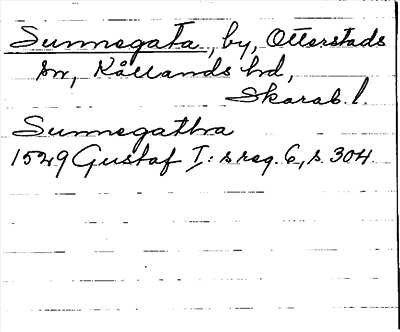 Sunnegata, by, Otterstads
sn, Kållands hd,
Skarab. l.
Sunnegathra
1529 Gustaf I:s reg. 6, s. 304